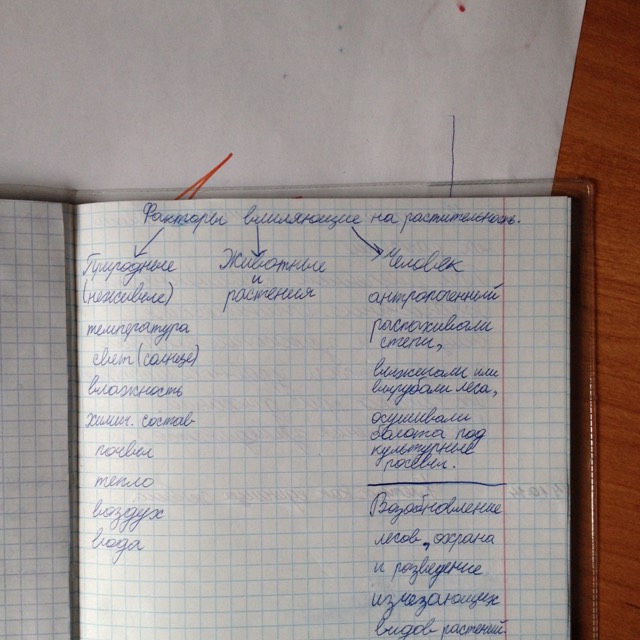 Факторы влияющие на растительность.
Природные
(неживые)
температура
свет (солнце)
влажность
химич. состав
почвы
тепло
воздух
вода
Животные
и
растения
Человек
антропогенный
распахивали
степи,
выжигали или
вырубали леса,
осушивали
болота под
культурные
посевы.
Возобновление
лесов, охрана
и розведение
изчезающих
видов растений